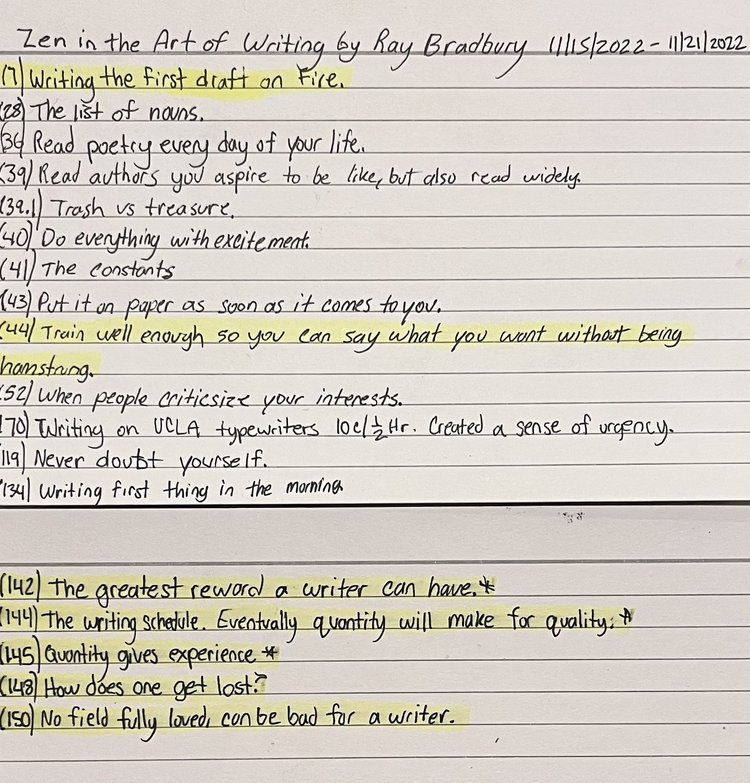 Zen in the Art of Writing by Ray Bradbury 11/15/2022 - 11/21/2022
(7) Writing the first draft on Fire.
(28) The list of nouns.
(36) Read poetry every day of your life.
(39) Read authors you aspire to be like, but also read widely.
(39.1) Trash vs treasure.
(40) Do everything with excitement.
(41) The constants
(43) Put it on paper as soon as it comes to you.
(44) Train well enough so you can say what you want without being
hamstrung.
(52) When people criticsize your interests.
(70) Writing on UCLA typewriters 10¢/½Hr. Created a sense of urgency.
(119) Never doubt yourself.
(134) Writing first thing in the morning.
(142) The greatest reward a writer can have.*
(144) The writing schedule. Eventually quantity will make for quality.*
(145) Quantity gives experience *
(148) How does one get lost?
(150) No field fully loved, can be bad for a writer.